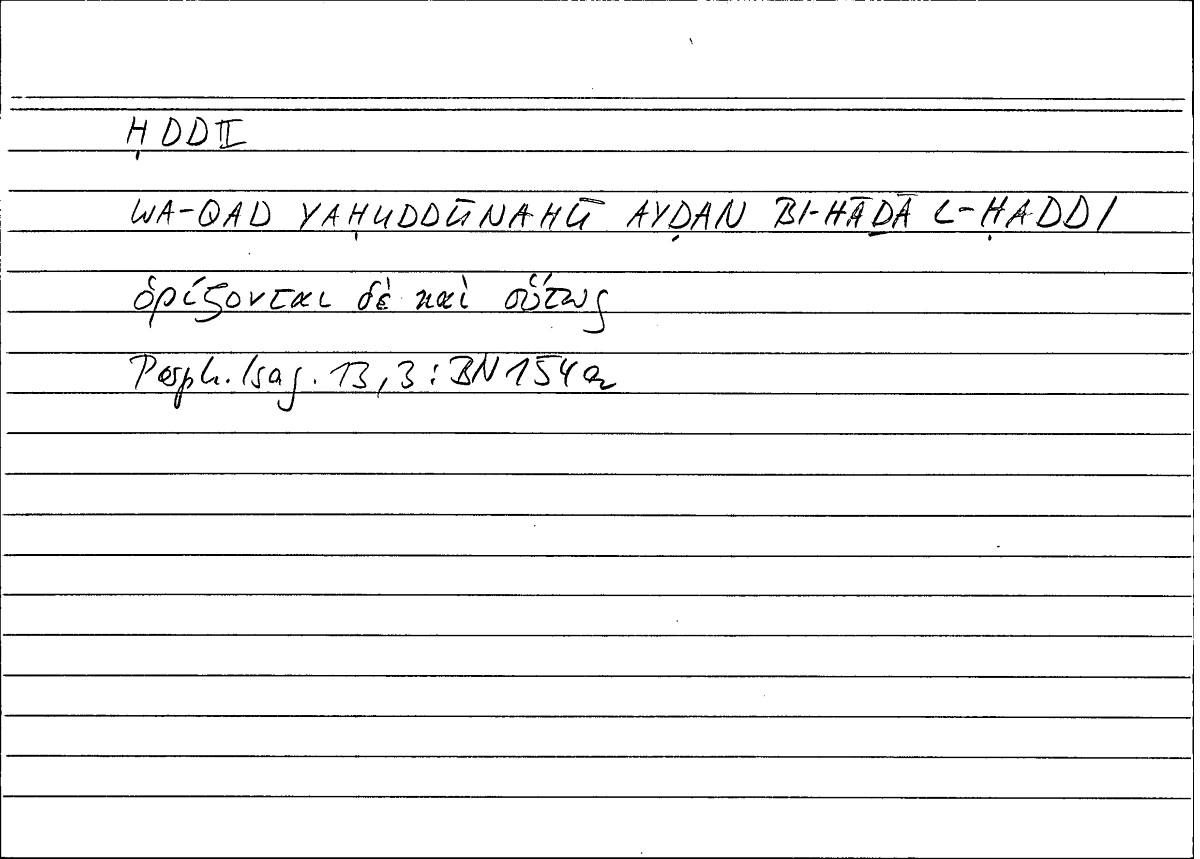 ḤDD II
WA-QAD YAḤUDDŪNAHŪ AYḌAN BI-HĀḎĀ L-ḤADDI
ὁρίζονται δὲ καὶ οὕτως
Porph. Isag. 13,3: BN 154a